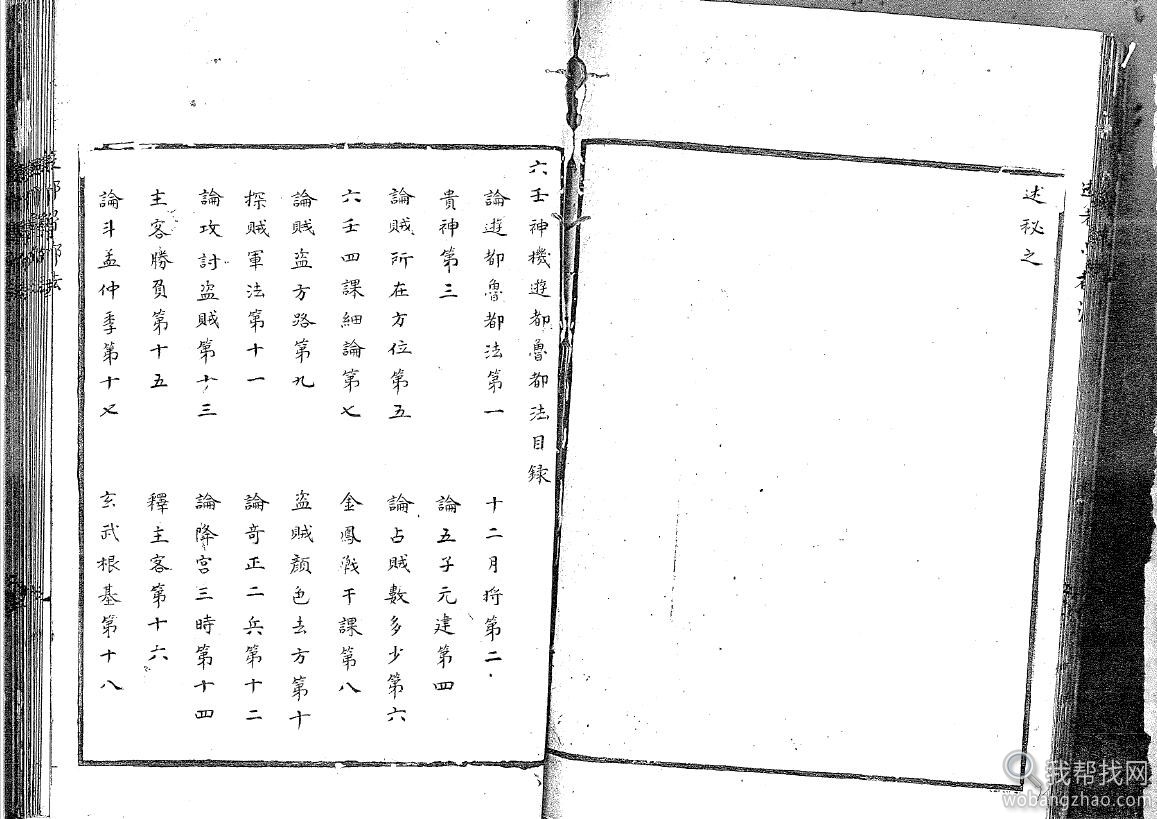 述秘之
六壬神機遊都魯都法目録
論遊都魯都法第一　十二月将第二
貴神第三　論五子元建第四
論賊所在方位第五　論占賊數多少第六
六壬四課細論第七　金鳳戰干課第八
論賊盜方路第九　盜賊顏色去方第十
探賊軍法第十一　論奇正二兵第十二
論攻討盜賊第十三　論降宮三時第十四
主客勝負第十五　釋主客第十六
論斗孟仲季第十七　玄武根基第十八
我帮找网
wobangzhao.com